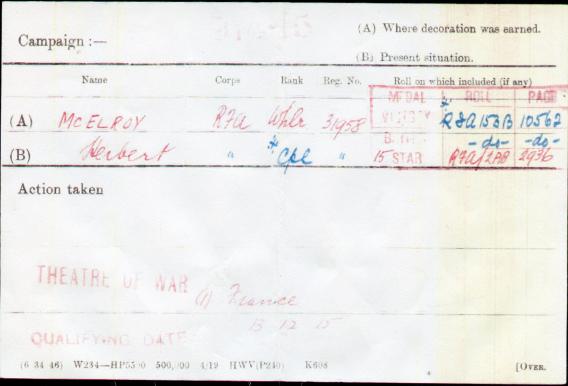 (A) Where decoration was earned.
Campaign :—
(B) Present situation.
Name Corps Rank Reg. No. Roll on which included (if any)
MEDAL ROLL PAGE
(A) McELROY RFA Whlr 31958 VICTORY RFA 153B 10562
(B) Herbert " * Cpl " -do- -do-
15 STAR RFA/2BB 2936
Action taken
THEATRE OF WAR (1) France
QUALIFYING DATE 13 12 15
(6 34 46) W234—HP5590 500,000 4/19 HWV(P240) K608 [OVER.